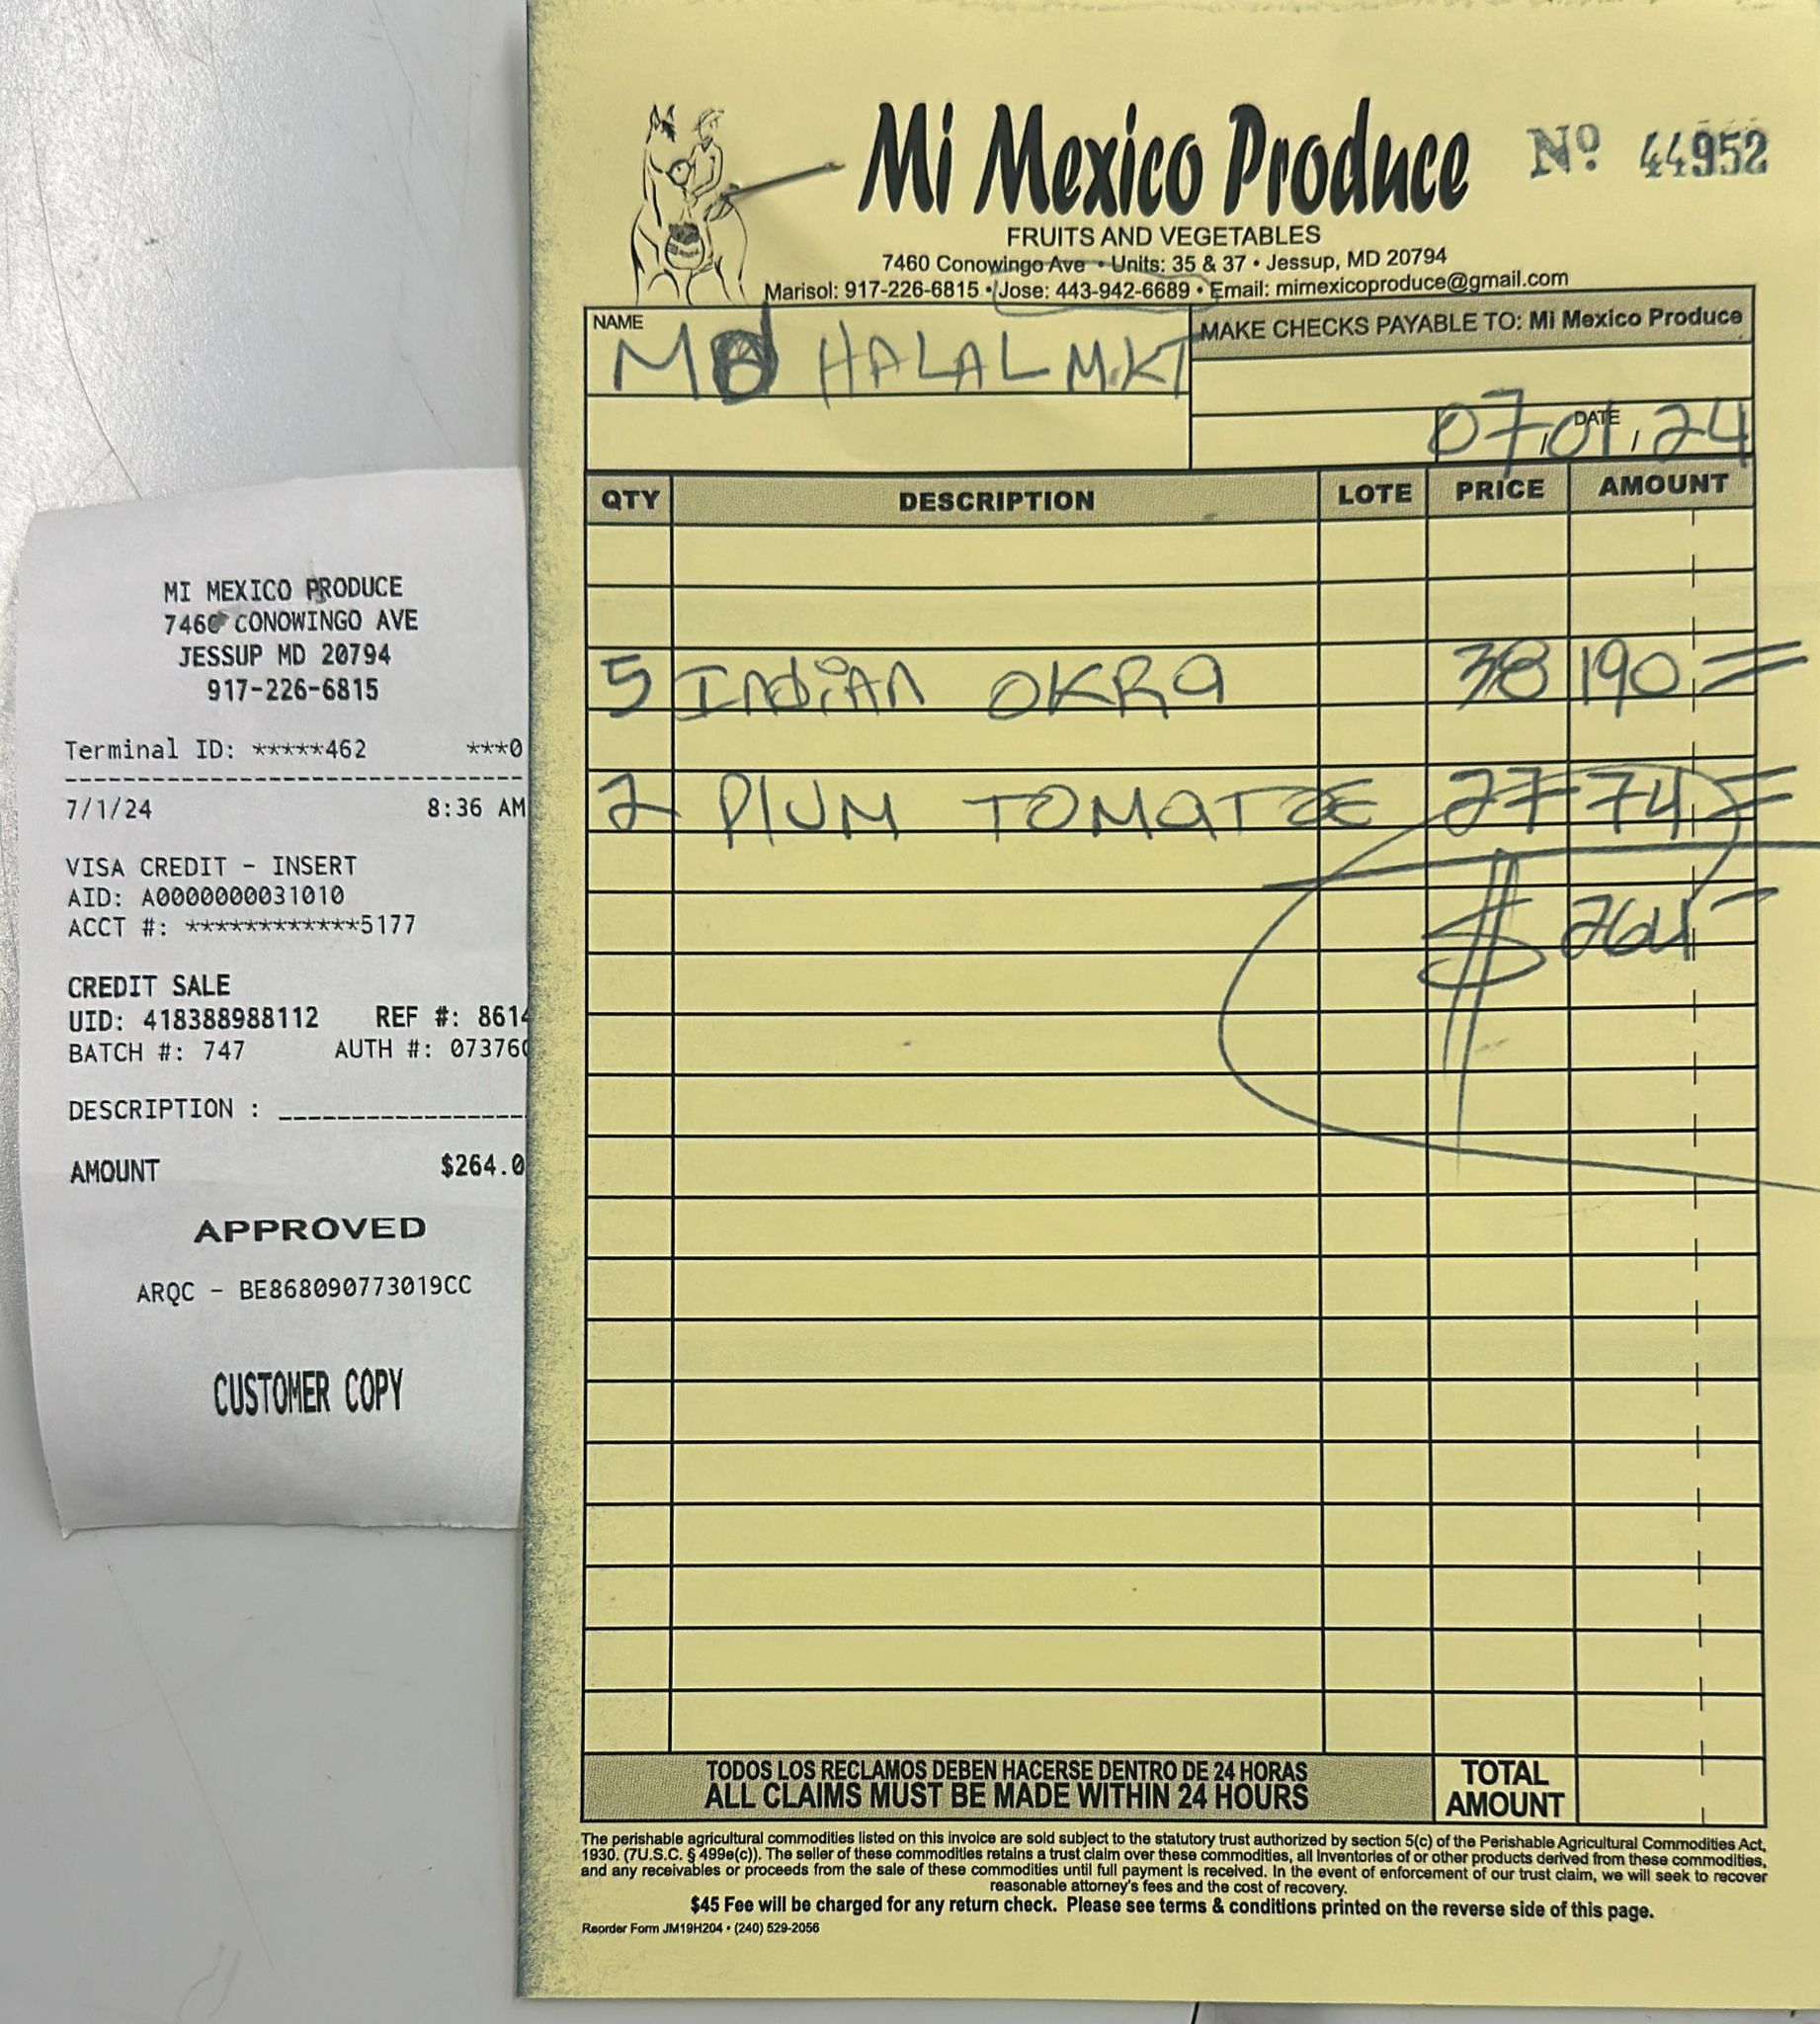 MI MEXICO PRODUCE
7460 CONOWINGO AVE
JESSUP MD 20794
917-226-6815
Terminal ID: *****462 ***0
7/1/24 8:36 AM
VISA CREDIT - INSERT
AID: A0000000031010
ACCT #: ************5177
CREDIT SALE
UID: 418388988112 REF #: 8614
BATCH #: 747 AUTH #: 073760
DESCRIPTION :
AMOUNT $264.0
APPROVED
ARQC - BE868090773019CC
CUSTOMER COPY
Mi Mexico Produce Nº 44952
FRUITS AND VEGETABLES
7460 Conowingo Ave • Units: 35 & 37 • Jessup, MD 20794
Marisol: 917-226-6815 • Jose: 443-942-6689 • Email: mimexicoproduce@gmail.com
NAME
MD HALAL MKT
MAKE CHECKS PAYABLE TO: Mi Mexico Produce
DATE
07/01/24
QTY DESCRIPTION LOTE PRICE AMOUNT
5 INDIAN OKRA 38 190
2 PLUM TOMATOE 74
$264
TODOS LOS RECLAMOS DEBEN HACERSE DENTRO DE 24 HORAS
ALL CLAIMS MUST BE MADE WITHIN 24 HOURS
TOTAL
AMOUNT
The perishable agricultural commodities listed on this invoice are sold subject to the statutory trust authorized by section 5(c) of the Perishable Agricultural Commodities Act,
1930. (7U.S.C. § 499e(c)). The seller of these commodities retains a trust claim over these commodities, all Inventories of or other products derived from these commodities,
and any receivables or proceeds from the sale of these commodities until full payment is received. In the event of enforcement of our trust claim, we will seek to recover
reasonable attorney's fees and the cost of recovery.
$45 Fee will be charged for any return check. Please see terms & conditions printed on the reverse side of this page.
Reorder Form JM19H204 • (240) 529-2056